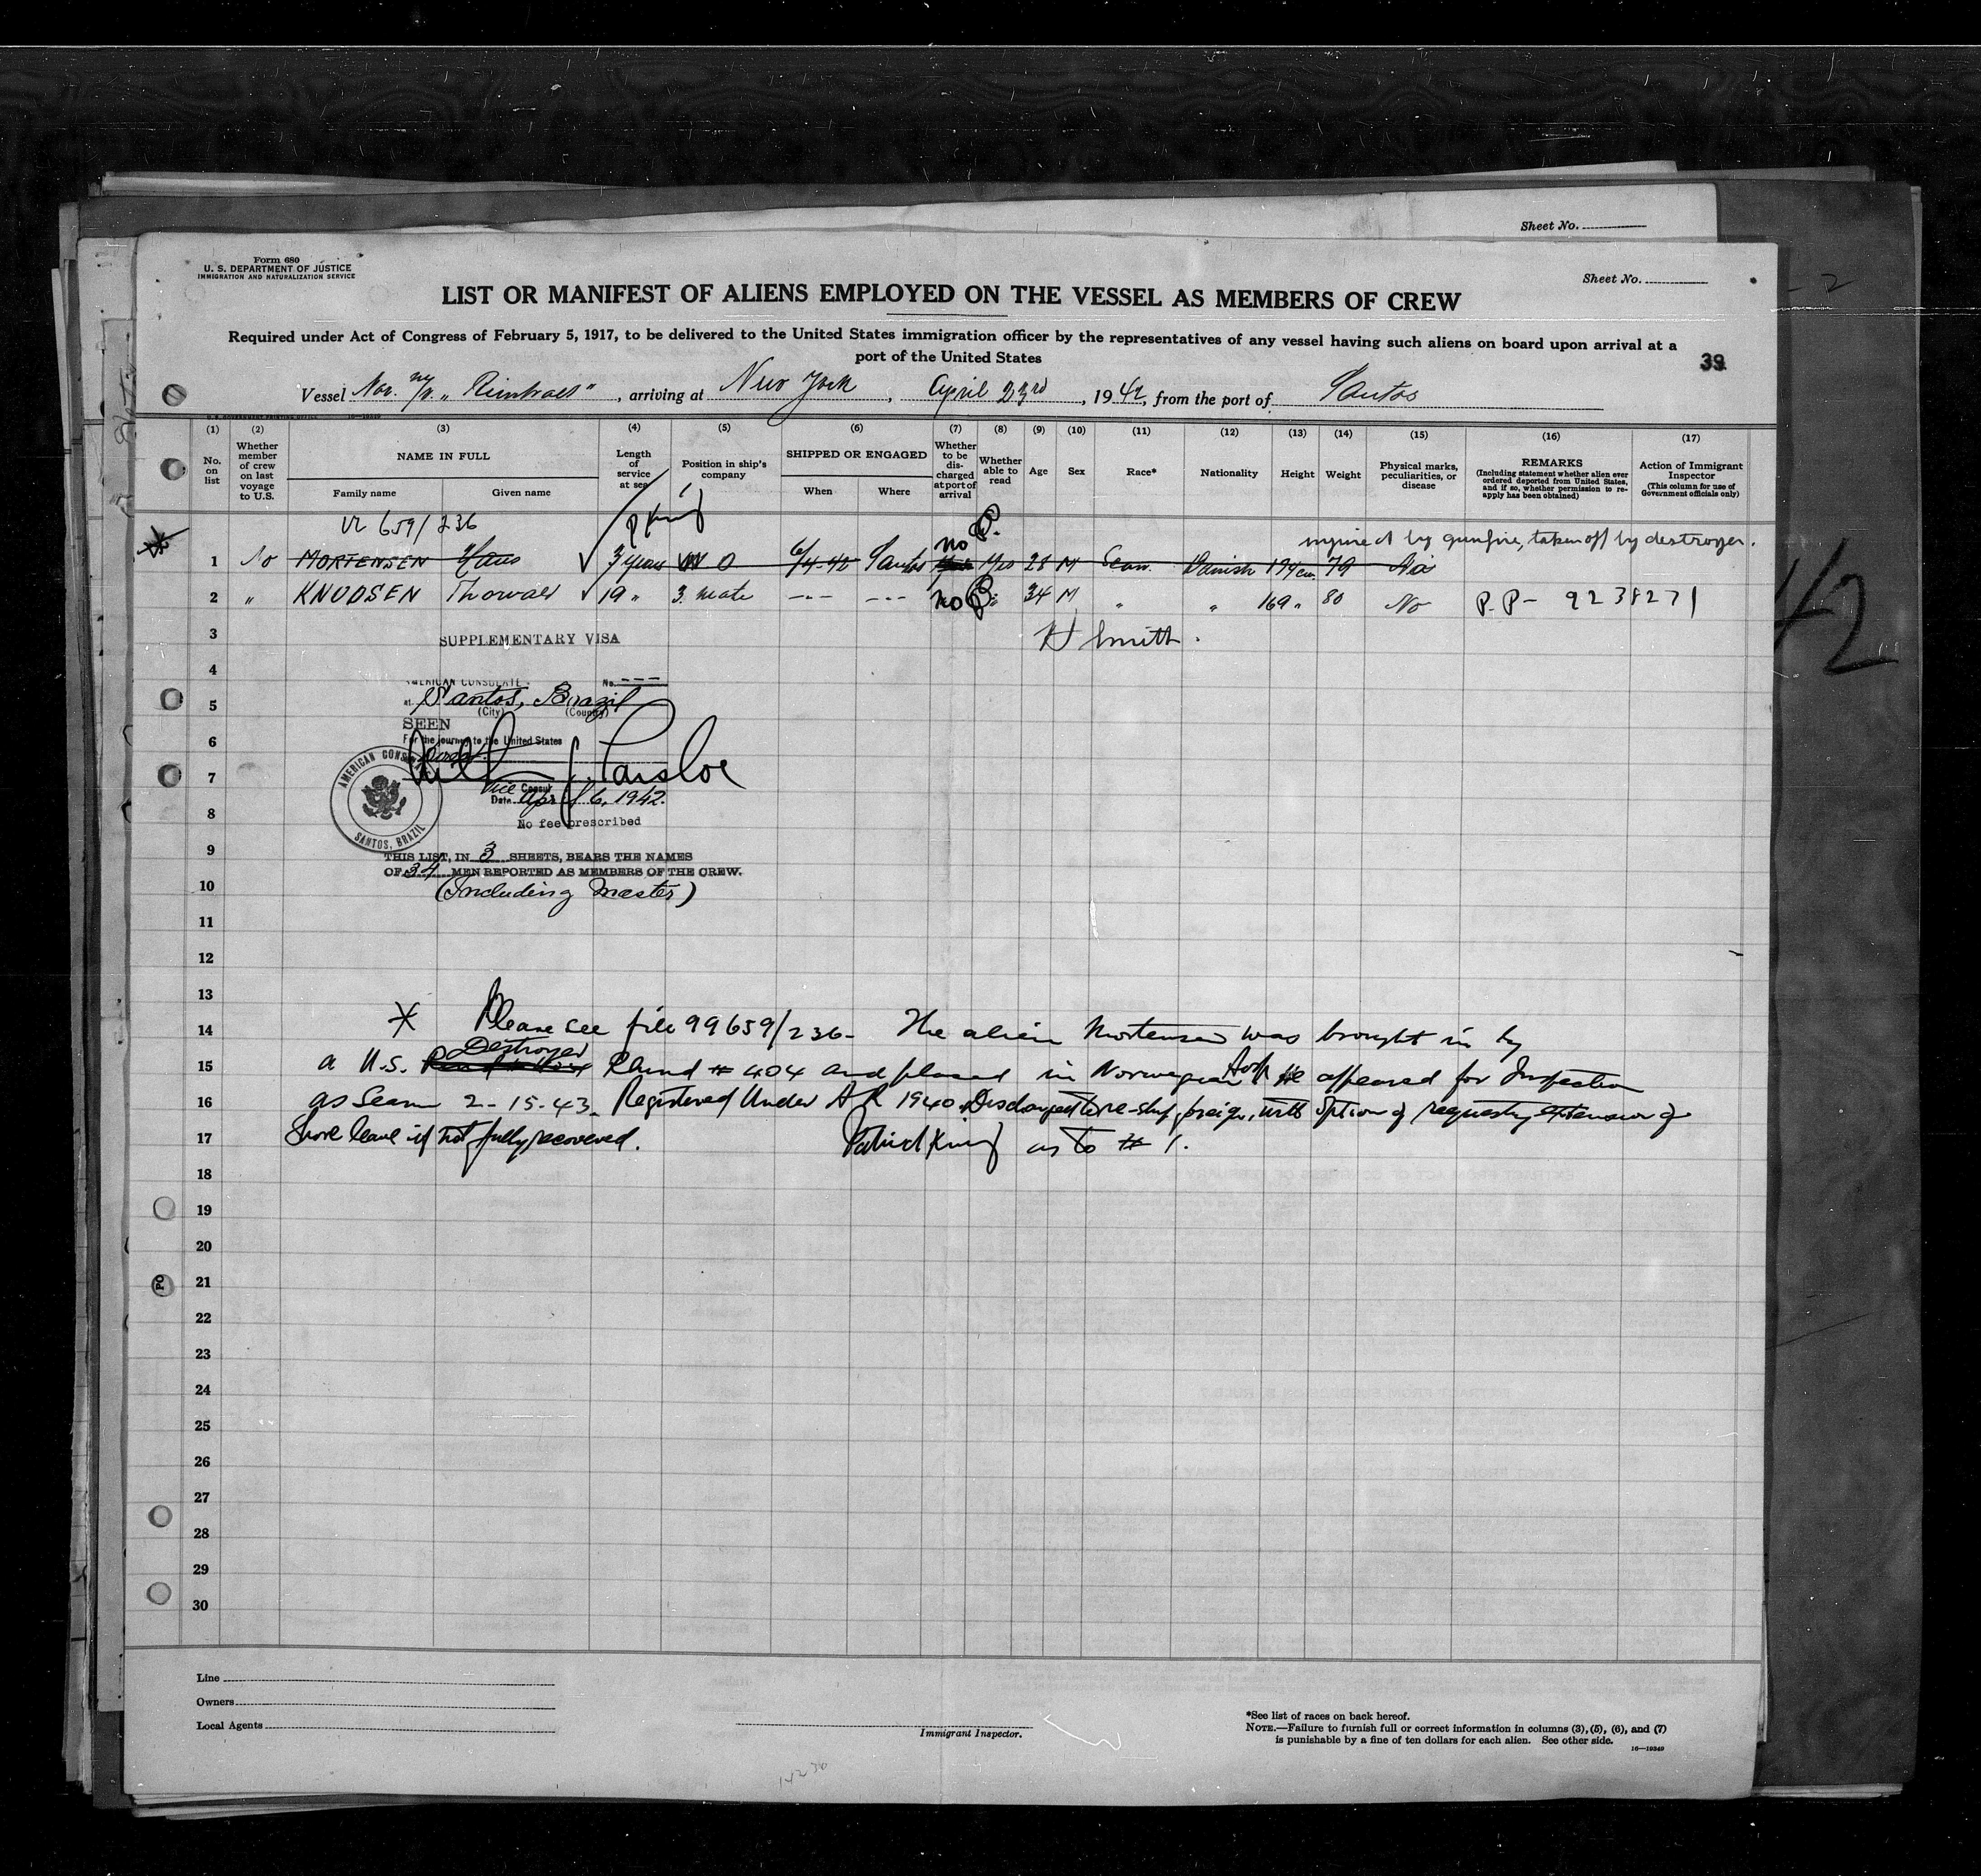 Sheet No.
Form 680
U. S. DEPARTMENT OF JUSTICE
IMMIGRATION AND NATURALIZATION SERVICE
Sheet No.
LIST OR MANIFEST OF ALIENS EMPLOYED ON THE VESSEL AS MEMBERS OF CREW
Required under Act of Congress of February 5, 1917, to be delivered to the United States immigration officer by the representatives of any vessel having such aliens on board upon arrival at a
port of the United States
39
Vessel Nor. M/V. „ , arriving at New York , April 23rd , 1942, from the port of Santos
(1) (2) (3) (4) (5) (6) (7) (8) (9) (10) (11) (12) (13) (14) (15) (16) (17)
No. on list
Whether member of crew on last voyage to U.S.
NAME IN FULL
Family name Given name
Length of service at sea
Position in ship's company
SHIPPED OR ENGAGED
When Where
Whether to be discharged at port of arrival
Whether able to read
Age
Sex
Race*
Nationality
Height
Weight
Physical marks, peculiarities, or disease
REMARKS
(Including statement whether alien ever ordered deported from United States, and if so, whether permission to reapply has been obtained)
Action of Immigrant Inspector
(This column for use of Government officials only)
659/236 PKing
injured by gunfire, taken off by destroyer.
1 No MORTENSEN Hans 3 years O 6/4-42 Santos no Yes 28 M Scan. Danish 194 cm. 79 No
2 „ KNUDSEN Thorvald 19 „ 3. mate --- --- no „ 34 M „ „ 169 „ 80 No P.P- 9238271
3 SUPPLEMENTARY VISA H Smith.
4
AMERICAN CONSULATE No. ---
5 at Santos, Brazil
(City) (Country)
SEEN
6 For the journey to the United States
7
Vice Consul
Date April 6, 1942.
8
No fee prescribed
AMERICAN CONSULATE
SANTOS, BRAZIL
9 THIS LIST, IN 3 SHEETS, BEARS THE NAMES
OF 34 MEN REPORTED AS MEMBERS OF THE CREW.
10 (Including Master)
11
12
13
14 * Please see file 99659/236- The alien Mortensen was brought in by
15 a U.S. Destroyer # 404 and placed in Norwegian Hosp He appeared for Inspection
16 as Seam 2-15-43. Registered Under A R 1940. Discharged to re-ship foreign, with option of requesting extension of
17 Shore leave if not fully recovered. Patrick King as to # 1.
18
19
20
21
22
23
24
25
26
27
28
29
30
Line
Owners
Local Agents
Immigrant Inspector.
*See list of races on back hereof.
NOTE.—Failure to furnish full or correct information in columns (3), (5), (6), and (7)
is punishable by a fine of ten dollars for each alien. See other side.
16—19349